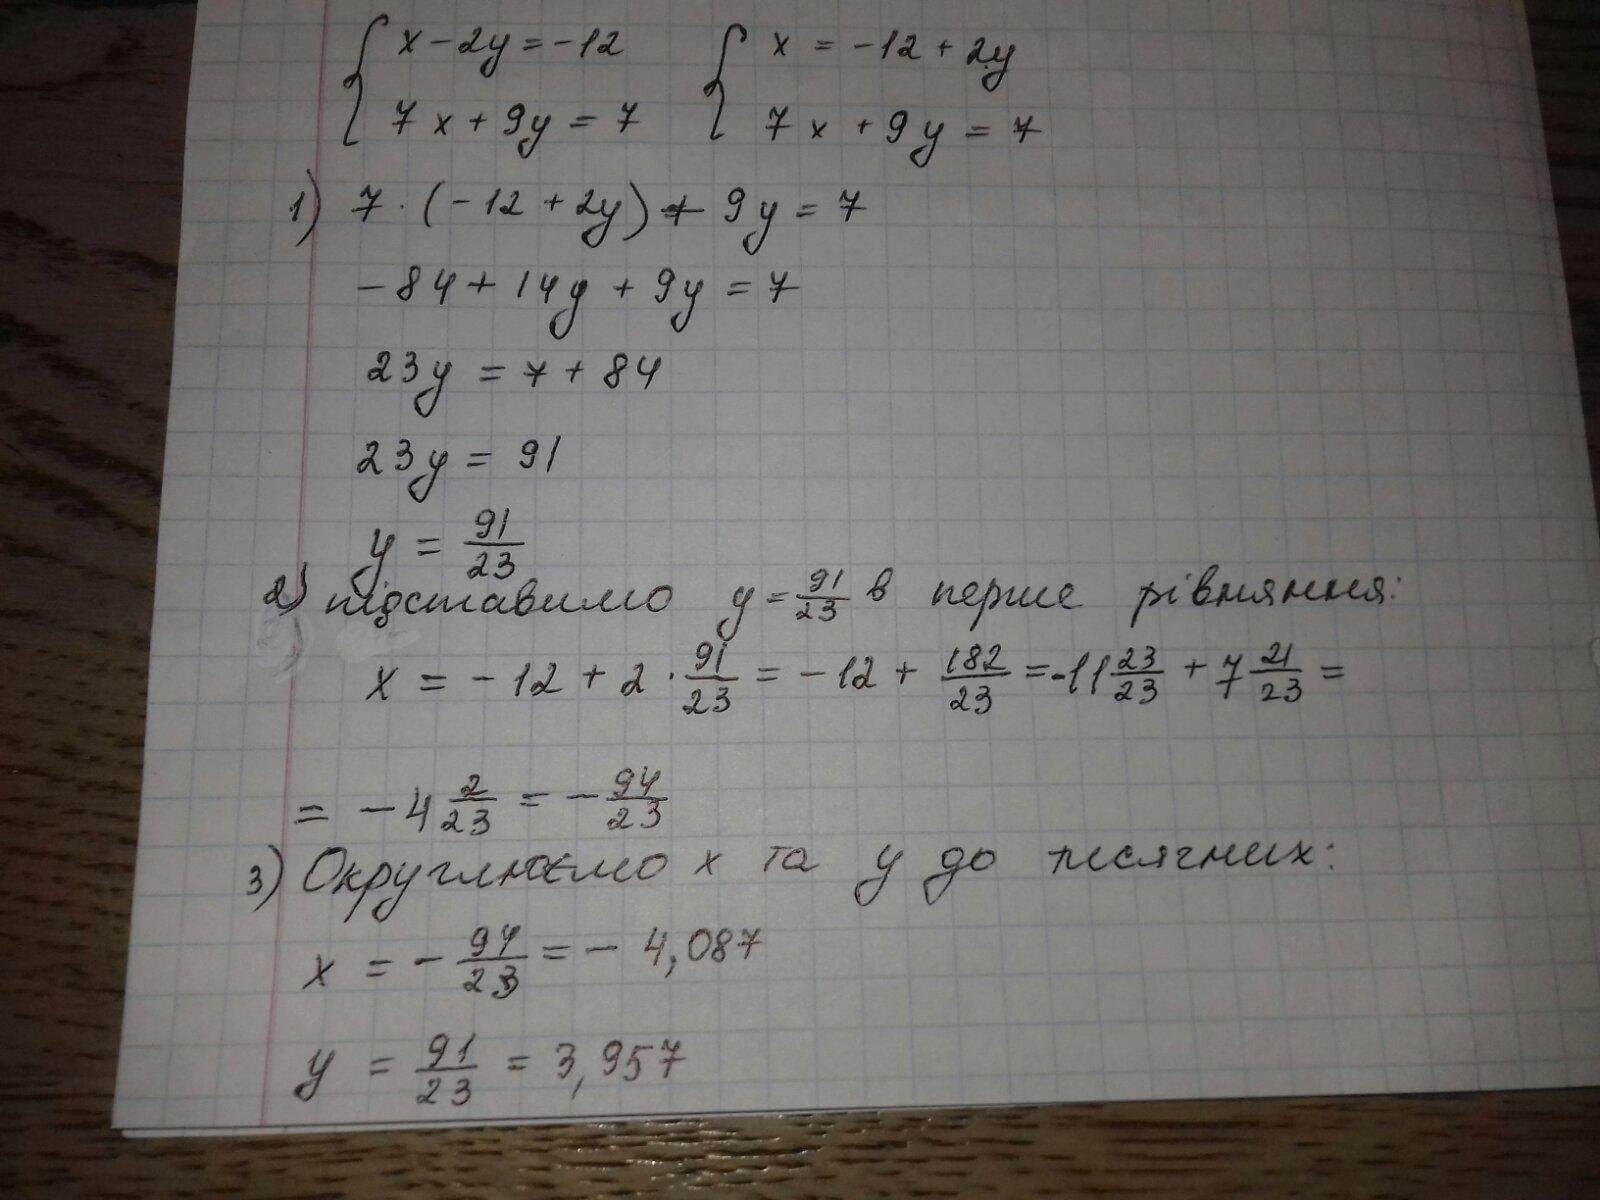 { x - 2y = -12    { x = -12 + 2y
7x + 9y = 7    7x + 9y = 7
1) 7 · (-12 + 2y) + 9y = 7
-84 + 14y + 9y = 7
23y = 7 + 84
23y = 91
y = 91/23
2) підставимо y = 91/23 в перше рівняння:
x = -12 + 2 · 91/23 = -12 + 182/23 = -11 23/23 + 7 21/23 =
= -4 2/23 = - 94/23
3) Округлюємо x та y до тисячних:
x = - 94/23 = - 4,087
y = 91/23 = 3,957